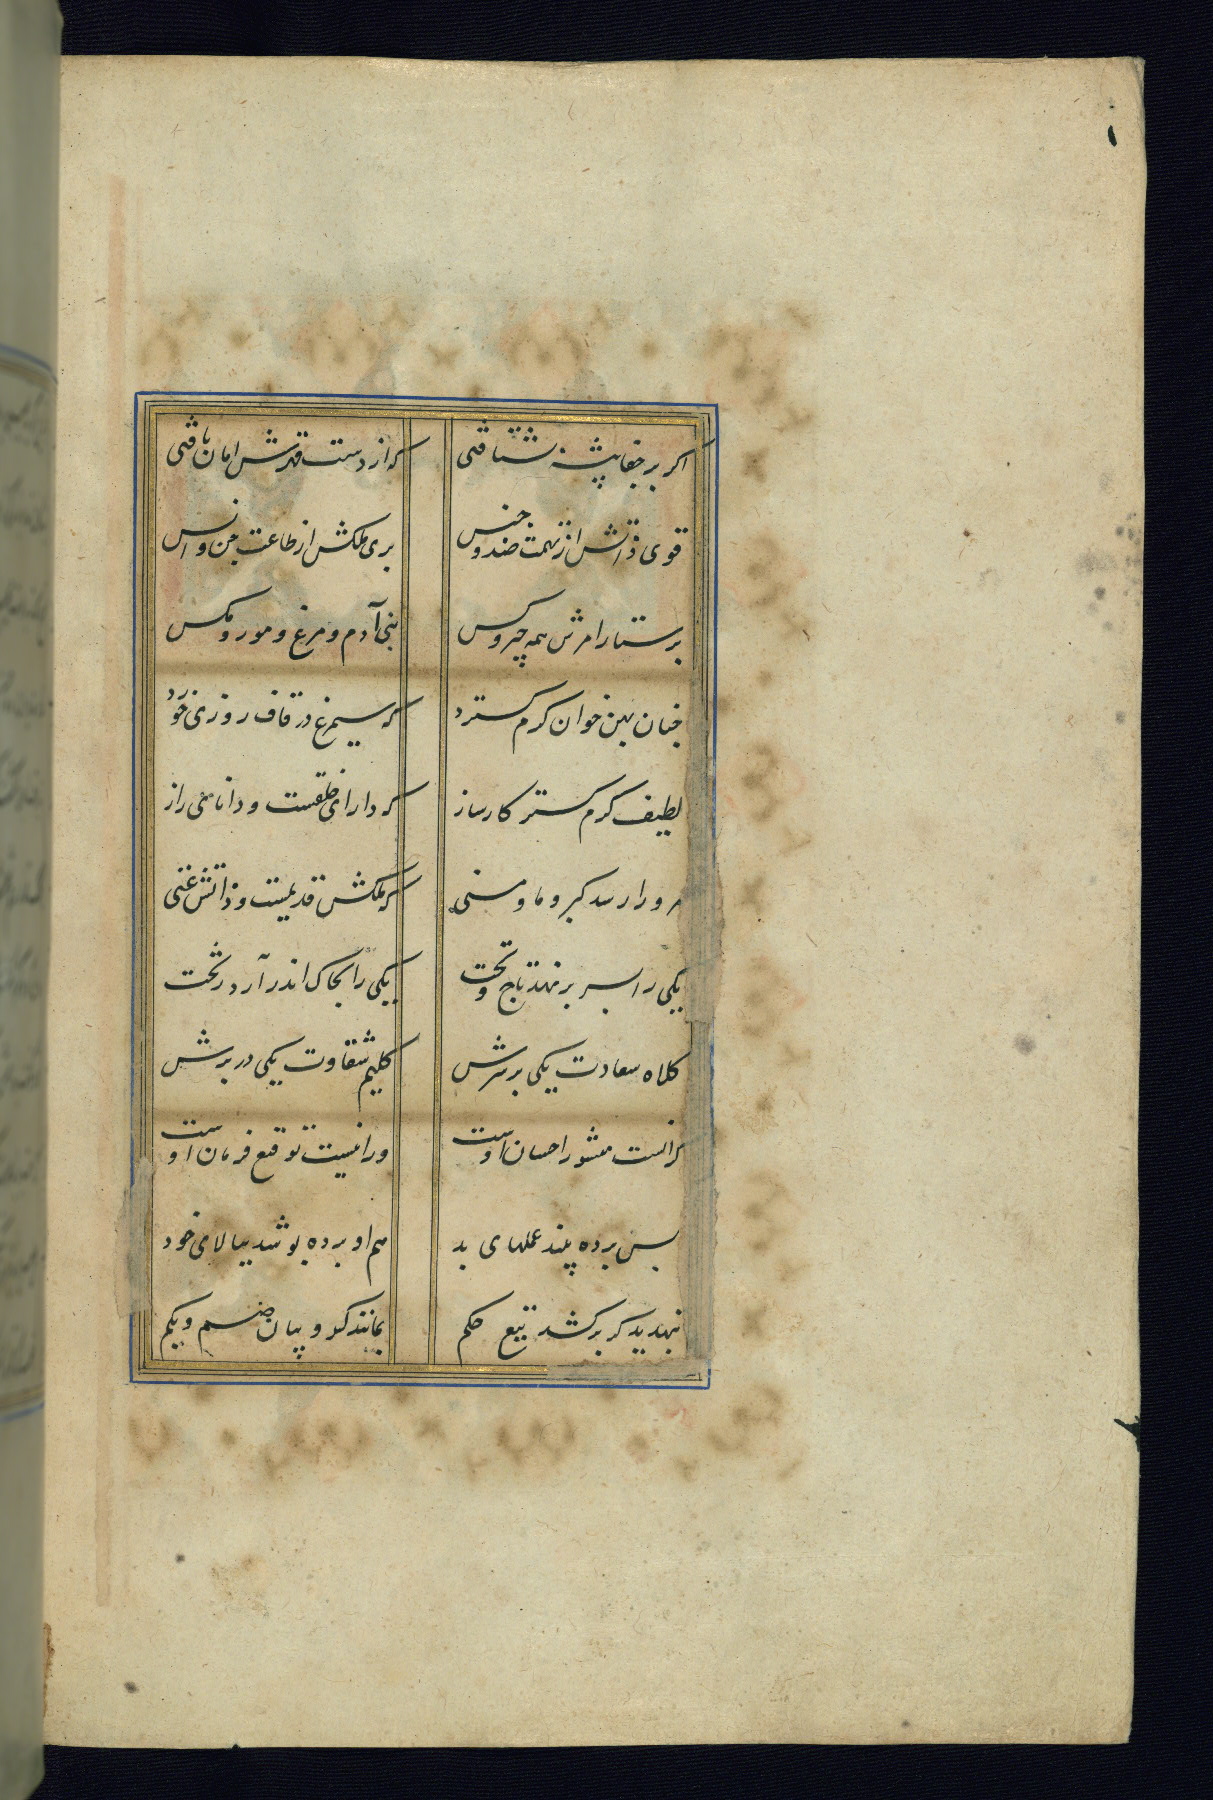 اکر بر جفاپیشه بشتافتی که از دست قهرش امان یافتی
قوی ذاتش از تهمت ضد و جنس بری ملکش از طاعت جن و انس
پرستار امرش همه چیز و کس بنی آدم و مرغ و مور و مکس
چنان پهن خوان کرم کسترد که سیمرغ در قاف روزی خورد
لطیف کرم کستر کارساز که دارای خلقست و دانای راز
مرورا رسد کبر و ما و منی که ملکش قدیمست و ذاتش غنی
یکی را بسر بر نهد تاج و تخت یکی را بخاک اندر آرد ز تخت
کلاه سعادت یکی بر سرش کلیم شقاوت یکی در برش
کرانست منشور احسان اوست ورانیست توقیع فرمان اوست
پس برده بیند عملهای بد هم او برده پوشد ببالای خود
بتهدید کر برکشد تیغ حکم بمانند کروبیان صم و بکم